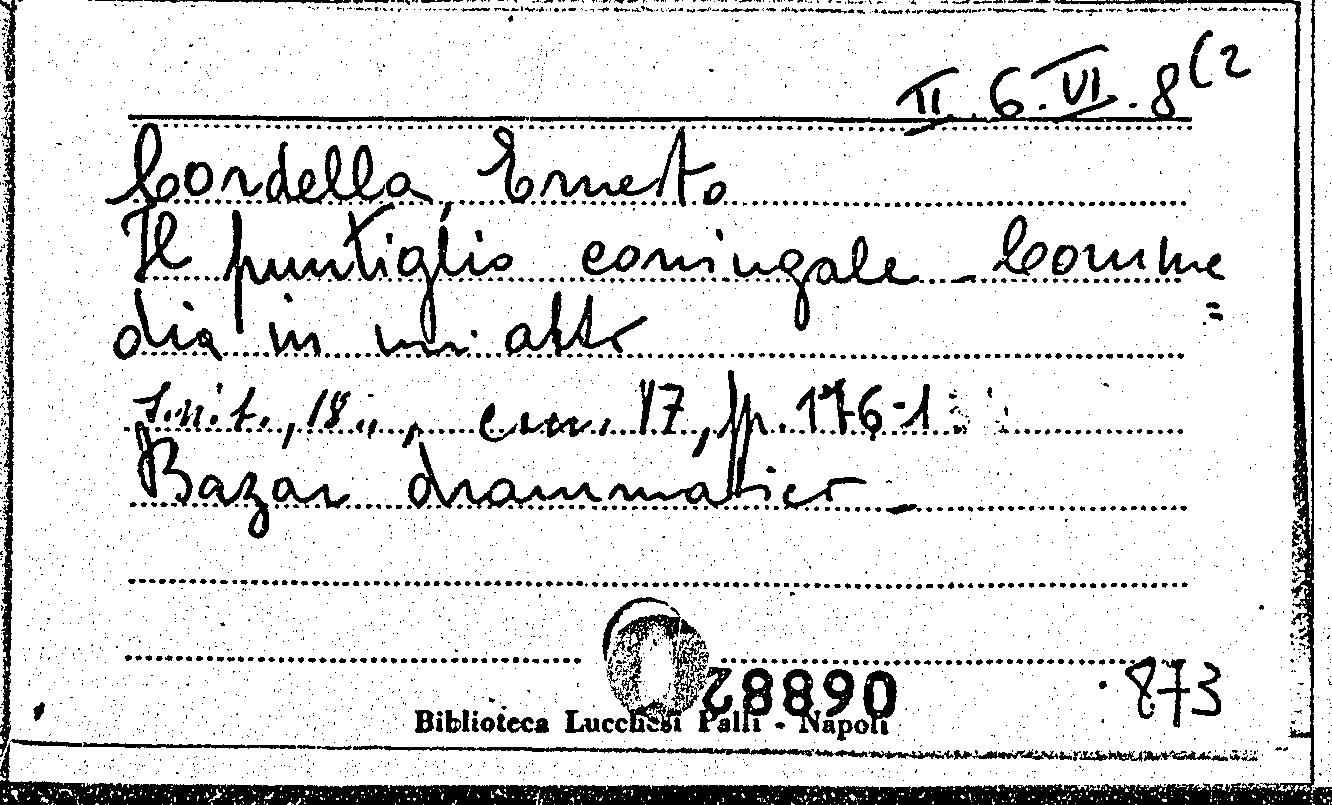 II.6.VI.8(2
Cordella, Ernesto
Il puntiglio coniugale - Comme
=
dia in un atto
s.n.t., 18.., cm. 17, pp. 176-1
Bazar drammatico -
28890
873
Biblioteca Lucchesi Palli - Napoli